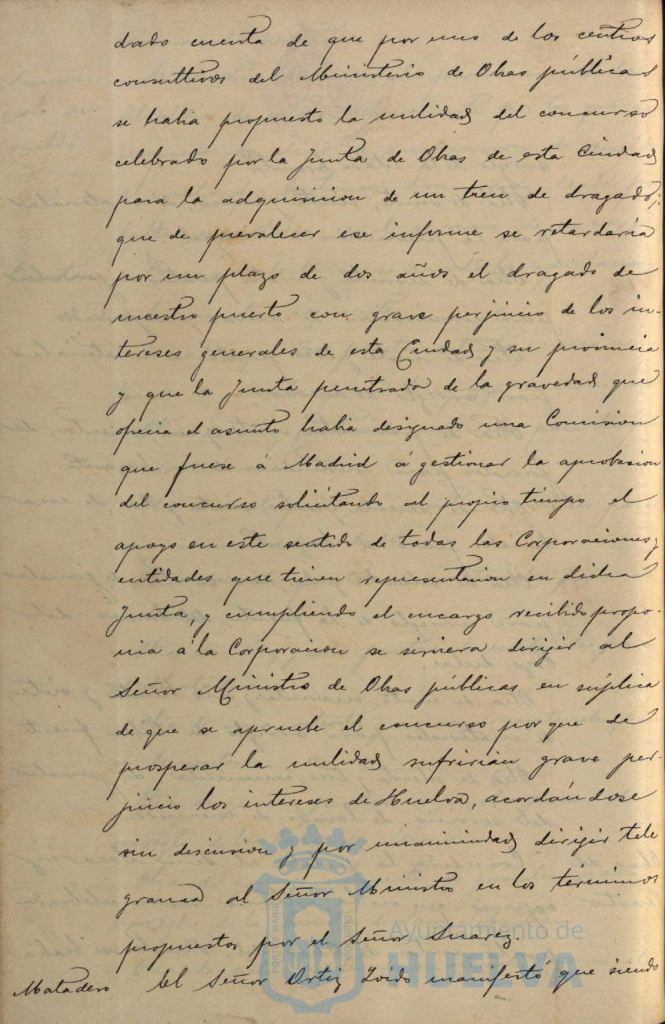 dado cuenta de que por uno de los centros
consultivos del Ministerio de Obras públicas
se habia propuesto la nulidad del concurso
celebrado por la Junta de Obras de esta Ciudad
para la adquisicion de un tren de dragado;
que de prevalecer ese informe se retardaria
por un plazo de dos años el dragado de
nuestro puerto con grave perjuicio de los in-
tereses generales de esta Ciudad y su provincia
y que la Junta penetrada de la gravedad que
ofrecia el asunto habia designado una Comision
que fuese á Madrid á gestionar la aprobacion
del concurso solicitando al propio tiempo el
apoyo en este sentido de todas las Corporaciones y
entidades que tienen representacion en dicha
Junta, y cumpliendo el encargo recibido propo-
nia á la Corporacion se sirviera dirigir al
Señor Ministro de Obras públicas en súplica
de que se apruebe el concurso por que de
prosperar la nulidad sufririan grave per-
juicio los intereses de Huelva, acordándose
sin discusion y por unanimidad dirigir tele
grama al Señor Ministro en los términos
propuestos por el Señor Suarez.
Matadero El Señor Ortiz Toido manifestó que siendo
Ayuntamiento de
HUELVA